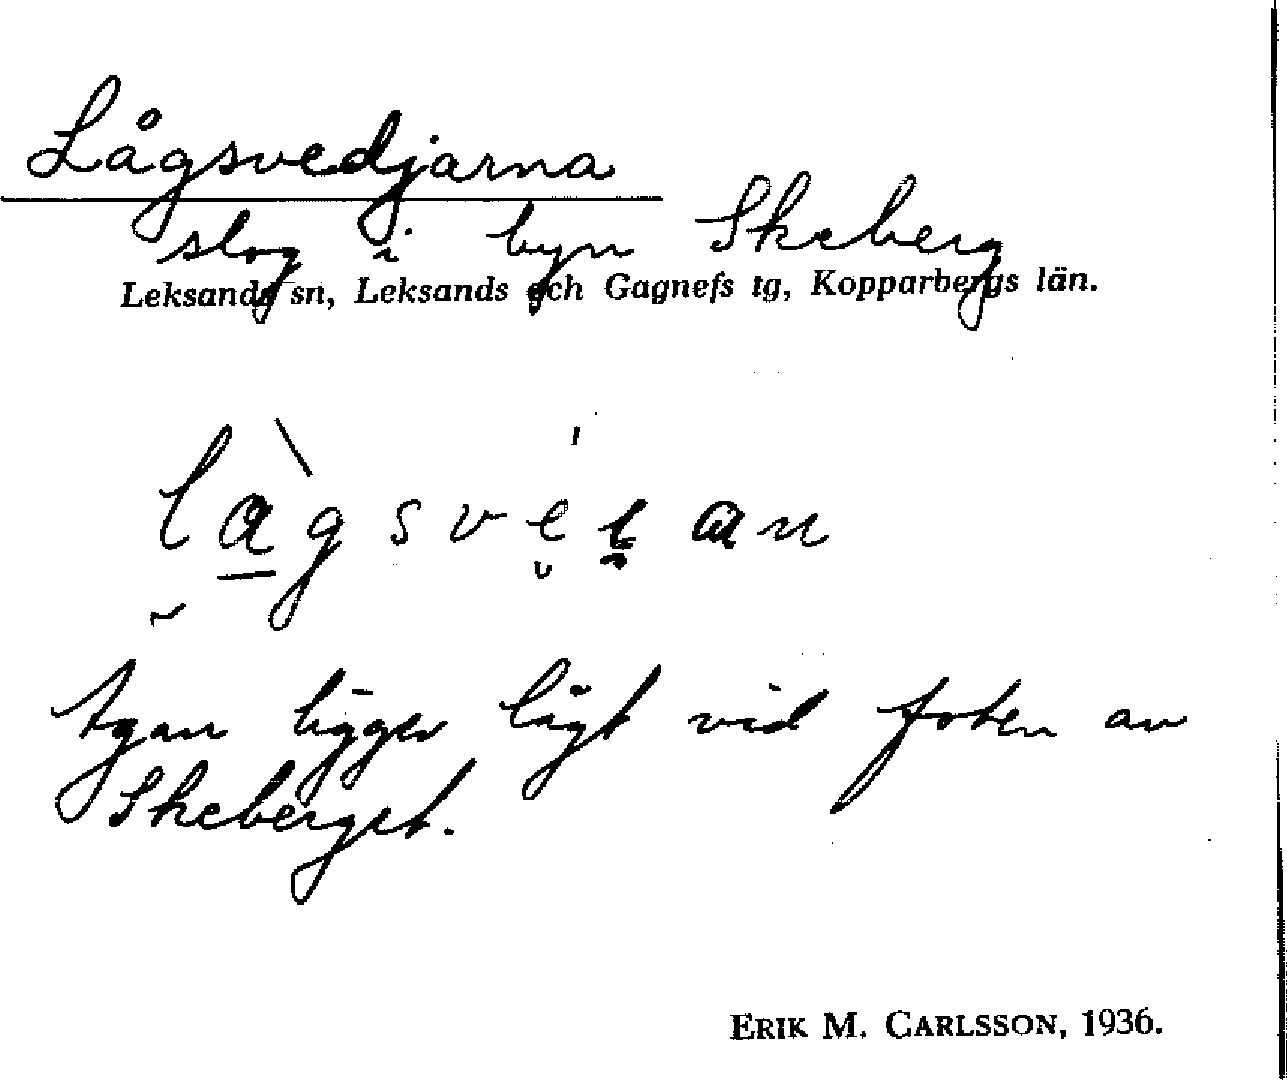 Lågsvedjarna
slog i byn Skeberg
Leksands sn, Leksands och Gagnefs tg, Kopparbergs län.
Ägan ligger lågt vid foten av
Skeberget.
ERIK M. CARLSSON, 1936.